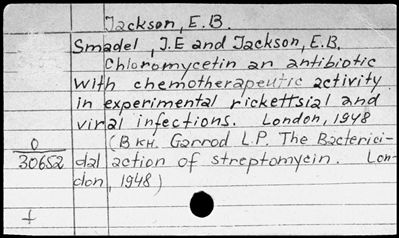 Jackson, E.B.
Smadel, J.E and Jackson, E.B.
Chloromycetin an antibiotic
with chemotherapeutic activity
in experimental rickettsial and
viral infections. London, 1948
(В кн. Garrod L.P. The Bacterici-
dal action of streptomycin. Lon-
don, 1948)
0
30652